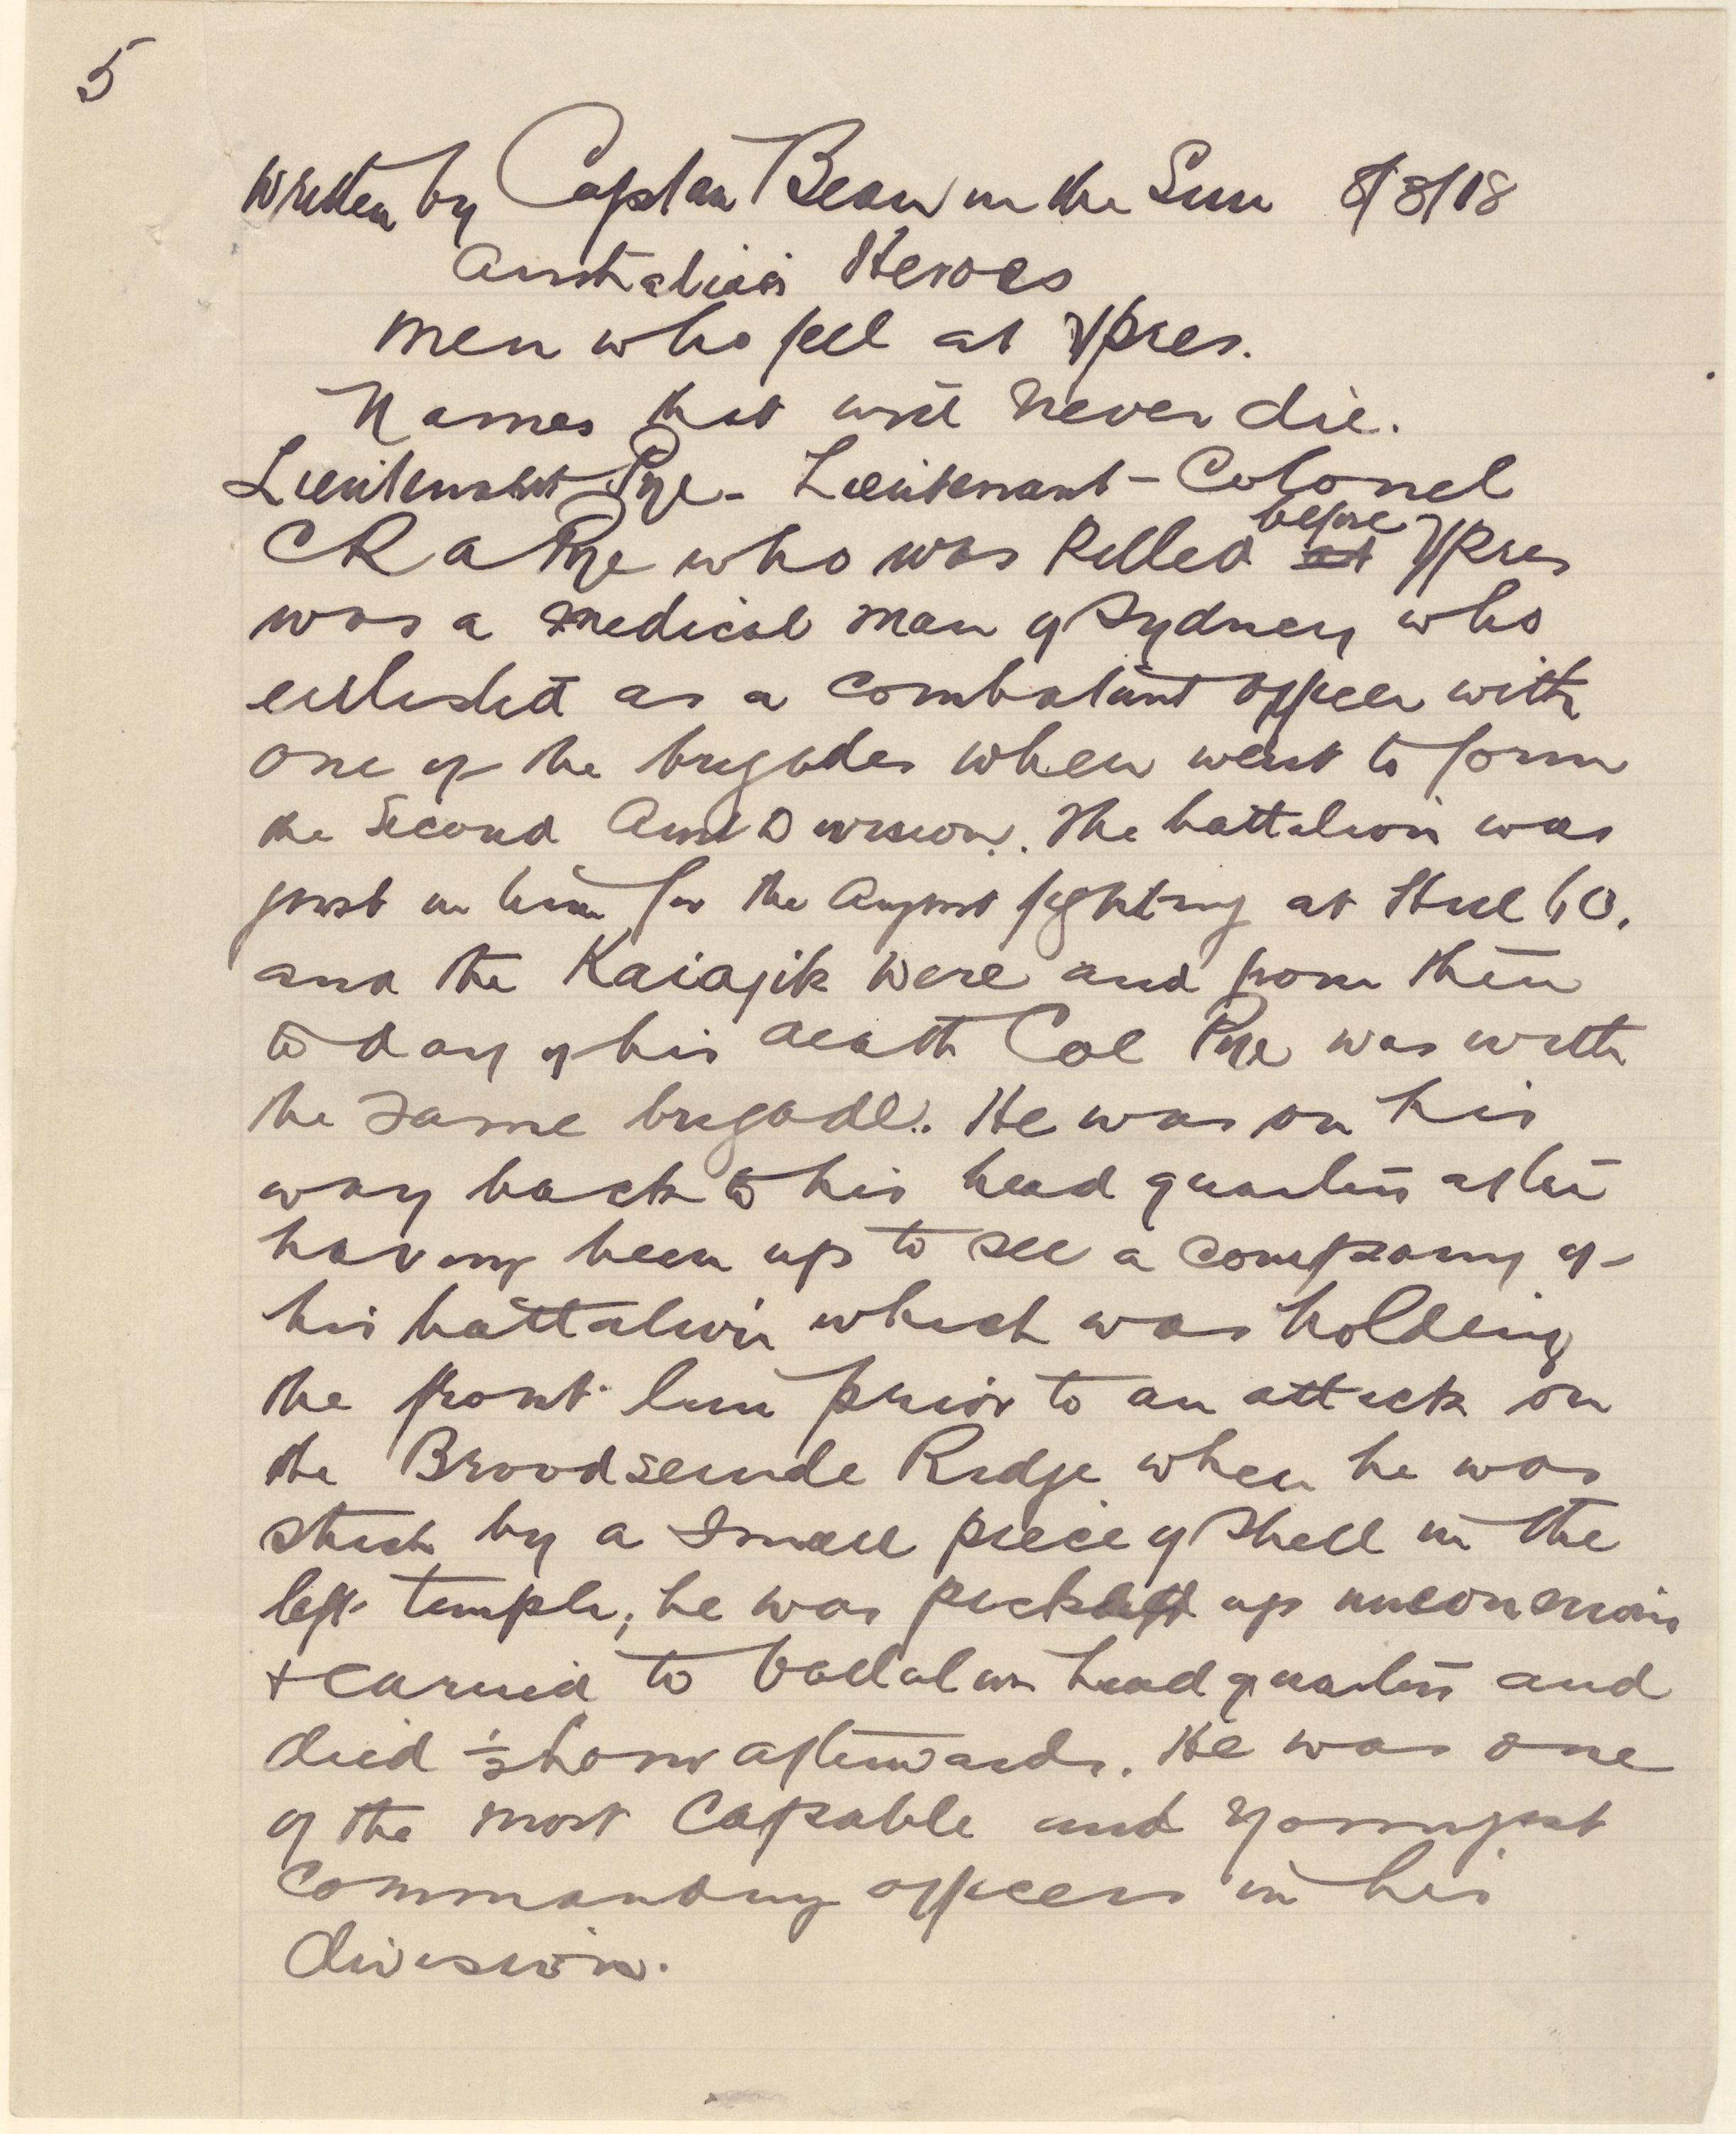 5
Written by Captan Bean in the Sun 8/3/18
Australia's Heroes
Men who fell at Ypres.
Names that will never die.
Lieutenant Pye - Lieutenant-Colonel
C R A Pye who was killed before Ypres
was a medical man of Sydney who
enlisted as a combatant officer with
one of the brigades when went to form
the Second Aust Division. The battalion was
just in time for the August fighting at Hill 60.
and the Kaiajik Dere and from then
to day of his death Col Pye was with
the same brigade. He was on his
way back to his head quarters after
having been up to see a company of
his battalion which was holding
the front line prior to an attack on
the Broodseinde Ridge when he was
struck by a small piece of shell in the
left temple, he was picked up unconscious
+ carried to battalion headquarters and
died ½ hour afterwards. He was one
of the most capable and youngest
commanding officers in his
division.